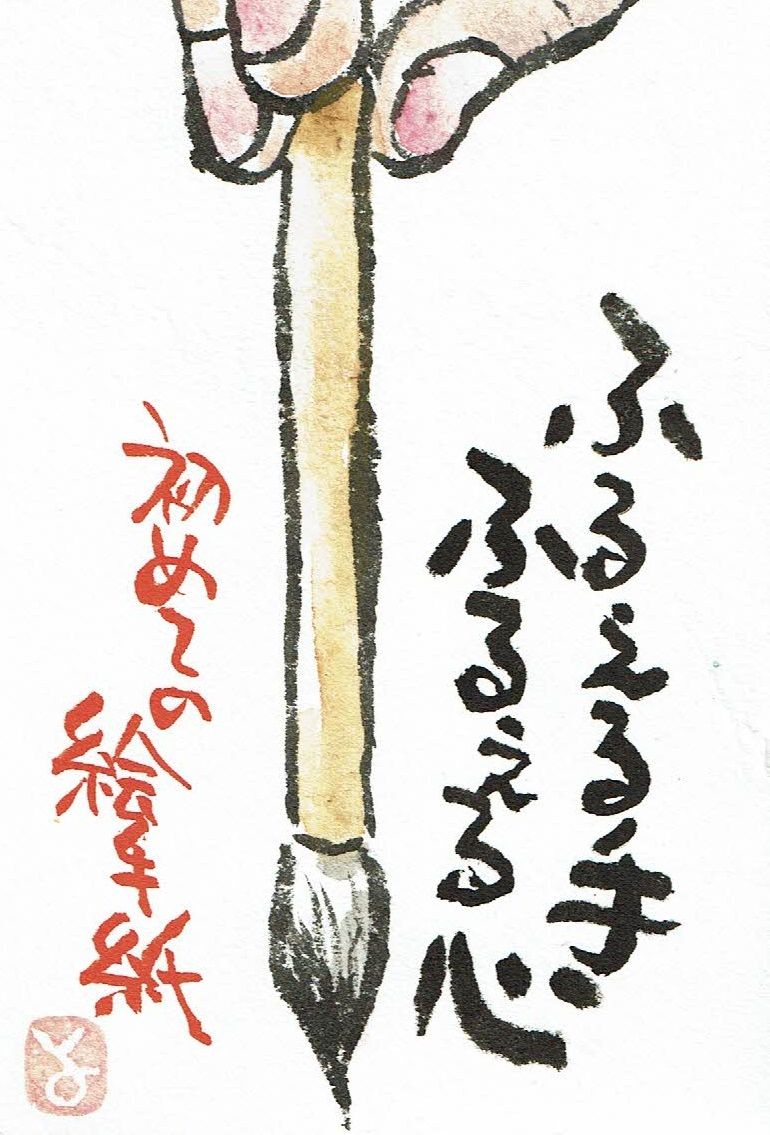 ふるえる手
ふるえる心
初めての
絵手紙